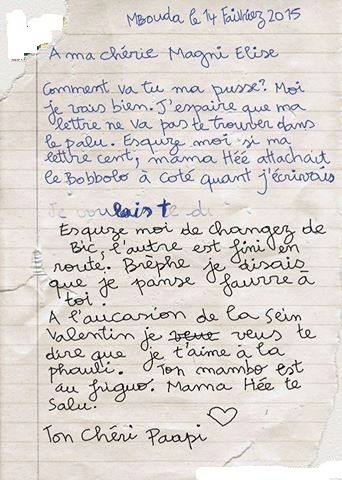 Mbouda le 14 Faivriez 2015
A ma chérie Magni Elise
Comment va tu ma pusse? Moi
je vais bien. J'espaire que ma
lettre ne va pas te trouver dans
le palu. Esquze moi si ma
lettre cent, mama Héé attachait
le Bobbolo à coté quant j'écrivais
Je voulais te di
Esquze moi de changez de
Bic, l'autre est fini en
route. Brèphe je disais
que je panse faurre à
toi.
A l'aucasion de la Sein
Valentin je veus te
dire que je t'aime à la
phauli. Ton mambo est
au friguo. Mama Hée te
Salu.
Ton Chéri Paapi